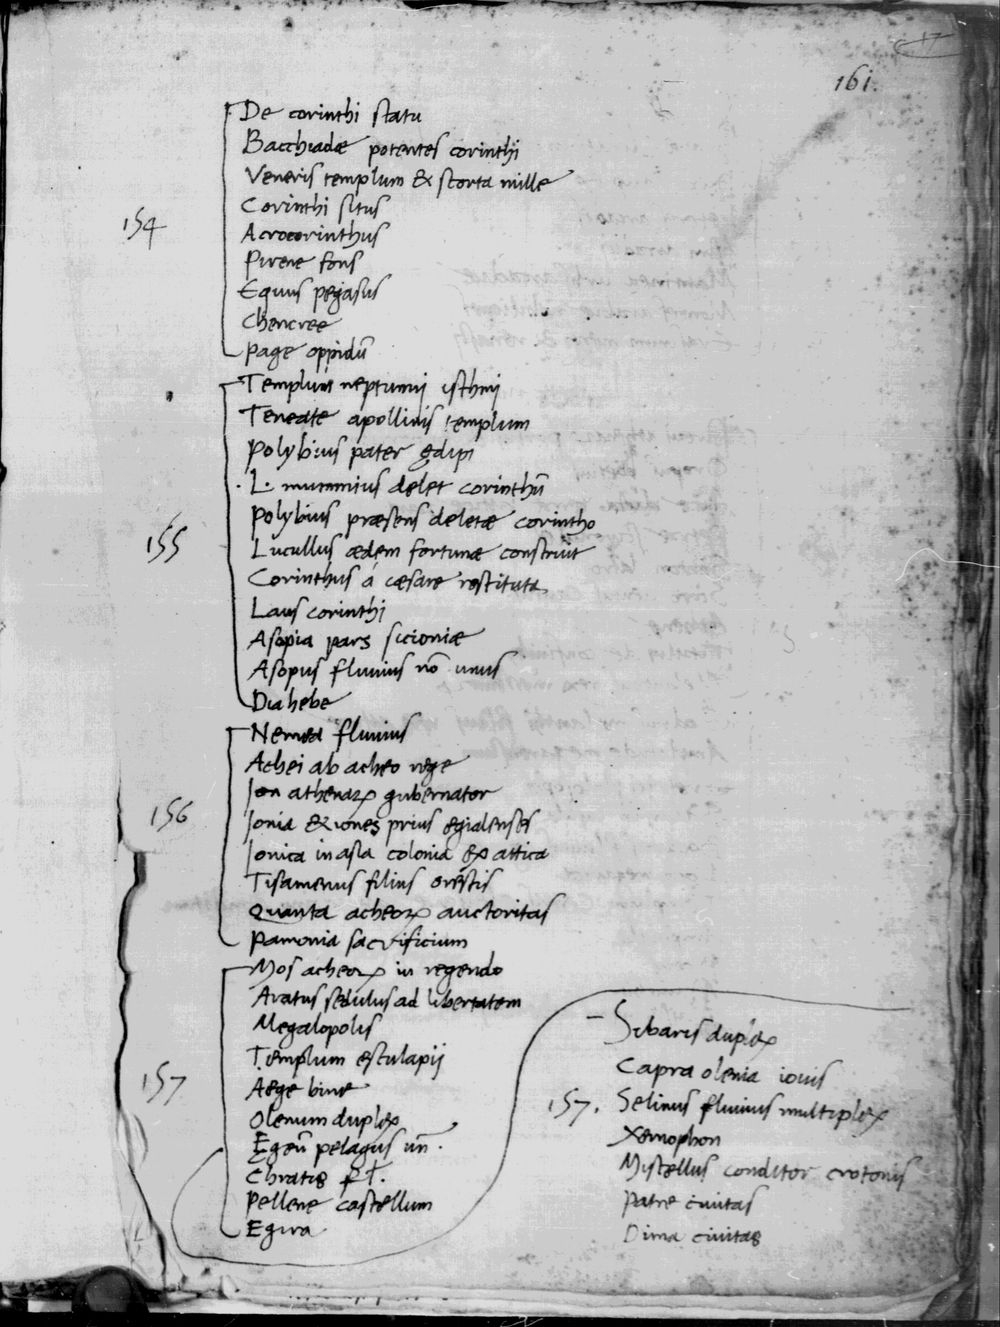 17
161.
De corinthi statu
Bacchiadæ potentes corinthi
Veneris templum & scorta mille
Corinthi situs
154
Acrocorinthus
Pirene fons
Equus pegasus
Chencree
Page oppidū
Templum neptunij isthmj
Teneate apollinis templum
Polybius pater ędipi
L. mummius delet corinthū
155
Polybius præsens deletæ corintho
Lucullus ædem fortunæ construit
Corinthus á cæsare restituta
Laus corinthi
Asopia pars sicioniæ
Asopus fluuius nō unus
Dia hebe
Nemea fluuius
Achei ab acheo rege
Ion athenaꝝ gubernator
156
Ionia & iones prius egialenses
Ionica in asia colonia ex attica
Tisamenus filius orestis
Quanta acheoꝝ auctoritas
Pamonia sacrificium
Mos acheoꝝ in regendo
Aratus sedulus ad libertatem
Megalopolis
Templum esculapij
157
Aege bine
Olenum duplex
Egeū pelagus
Chratis fl.
Pellene castellum
Egira
Sibaris duplex
Capra olenia iouis
157. Selinus fluuius multiplex
Xenophon
Miscellus conditor crotonis
Patre ciuitas
Dima ciuitas